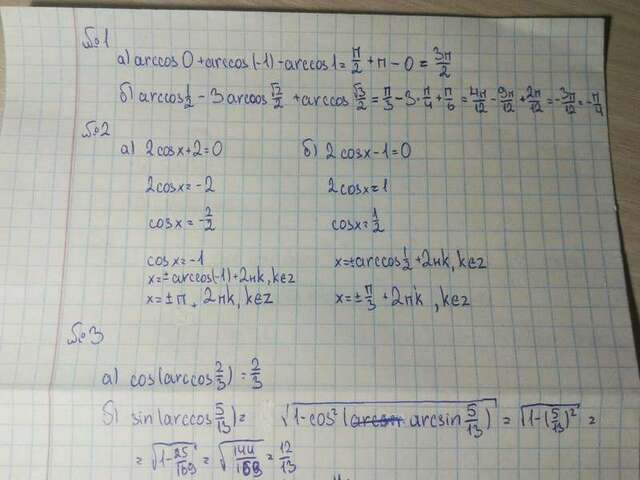 №1
а) arccos 0 + arccos(-1) - arccos 1 = π/2 + π - 0 = 3π/2
б) arccos 1/2 - 3 arccos √2/2 + arccos √3/2 = π/3 - 3·π/4 + π/6 = 4π/12 - 9π/12 + 2π/12 = -3π/12 = -π/4
№2
а) 2cosx+2=0
2cosx=-2
cosx=-2/2
cosx=-1
x=±arccos(-1)+2πk, k∈z
x=±π + 2πk, k∈z
б) 2cosx-1=0
2cosx=1
cosx=1/2
x=±arccos 1/2 +2πk, k∈z
x=±π/3 +2πk, k∈z
№3
а) cos(arccos 2/3) = 2/3
б) sin(arccos 5/13) = √(1-cos²(arcsin 5/13)) = √(1-(5/13)²) =
= √(1-25/169) = √(144/169) = 12/13